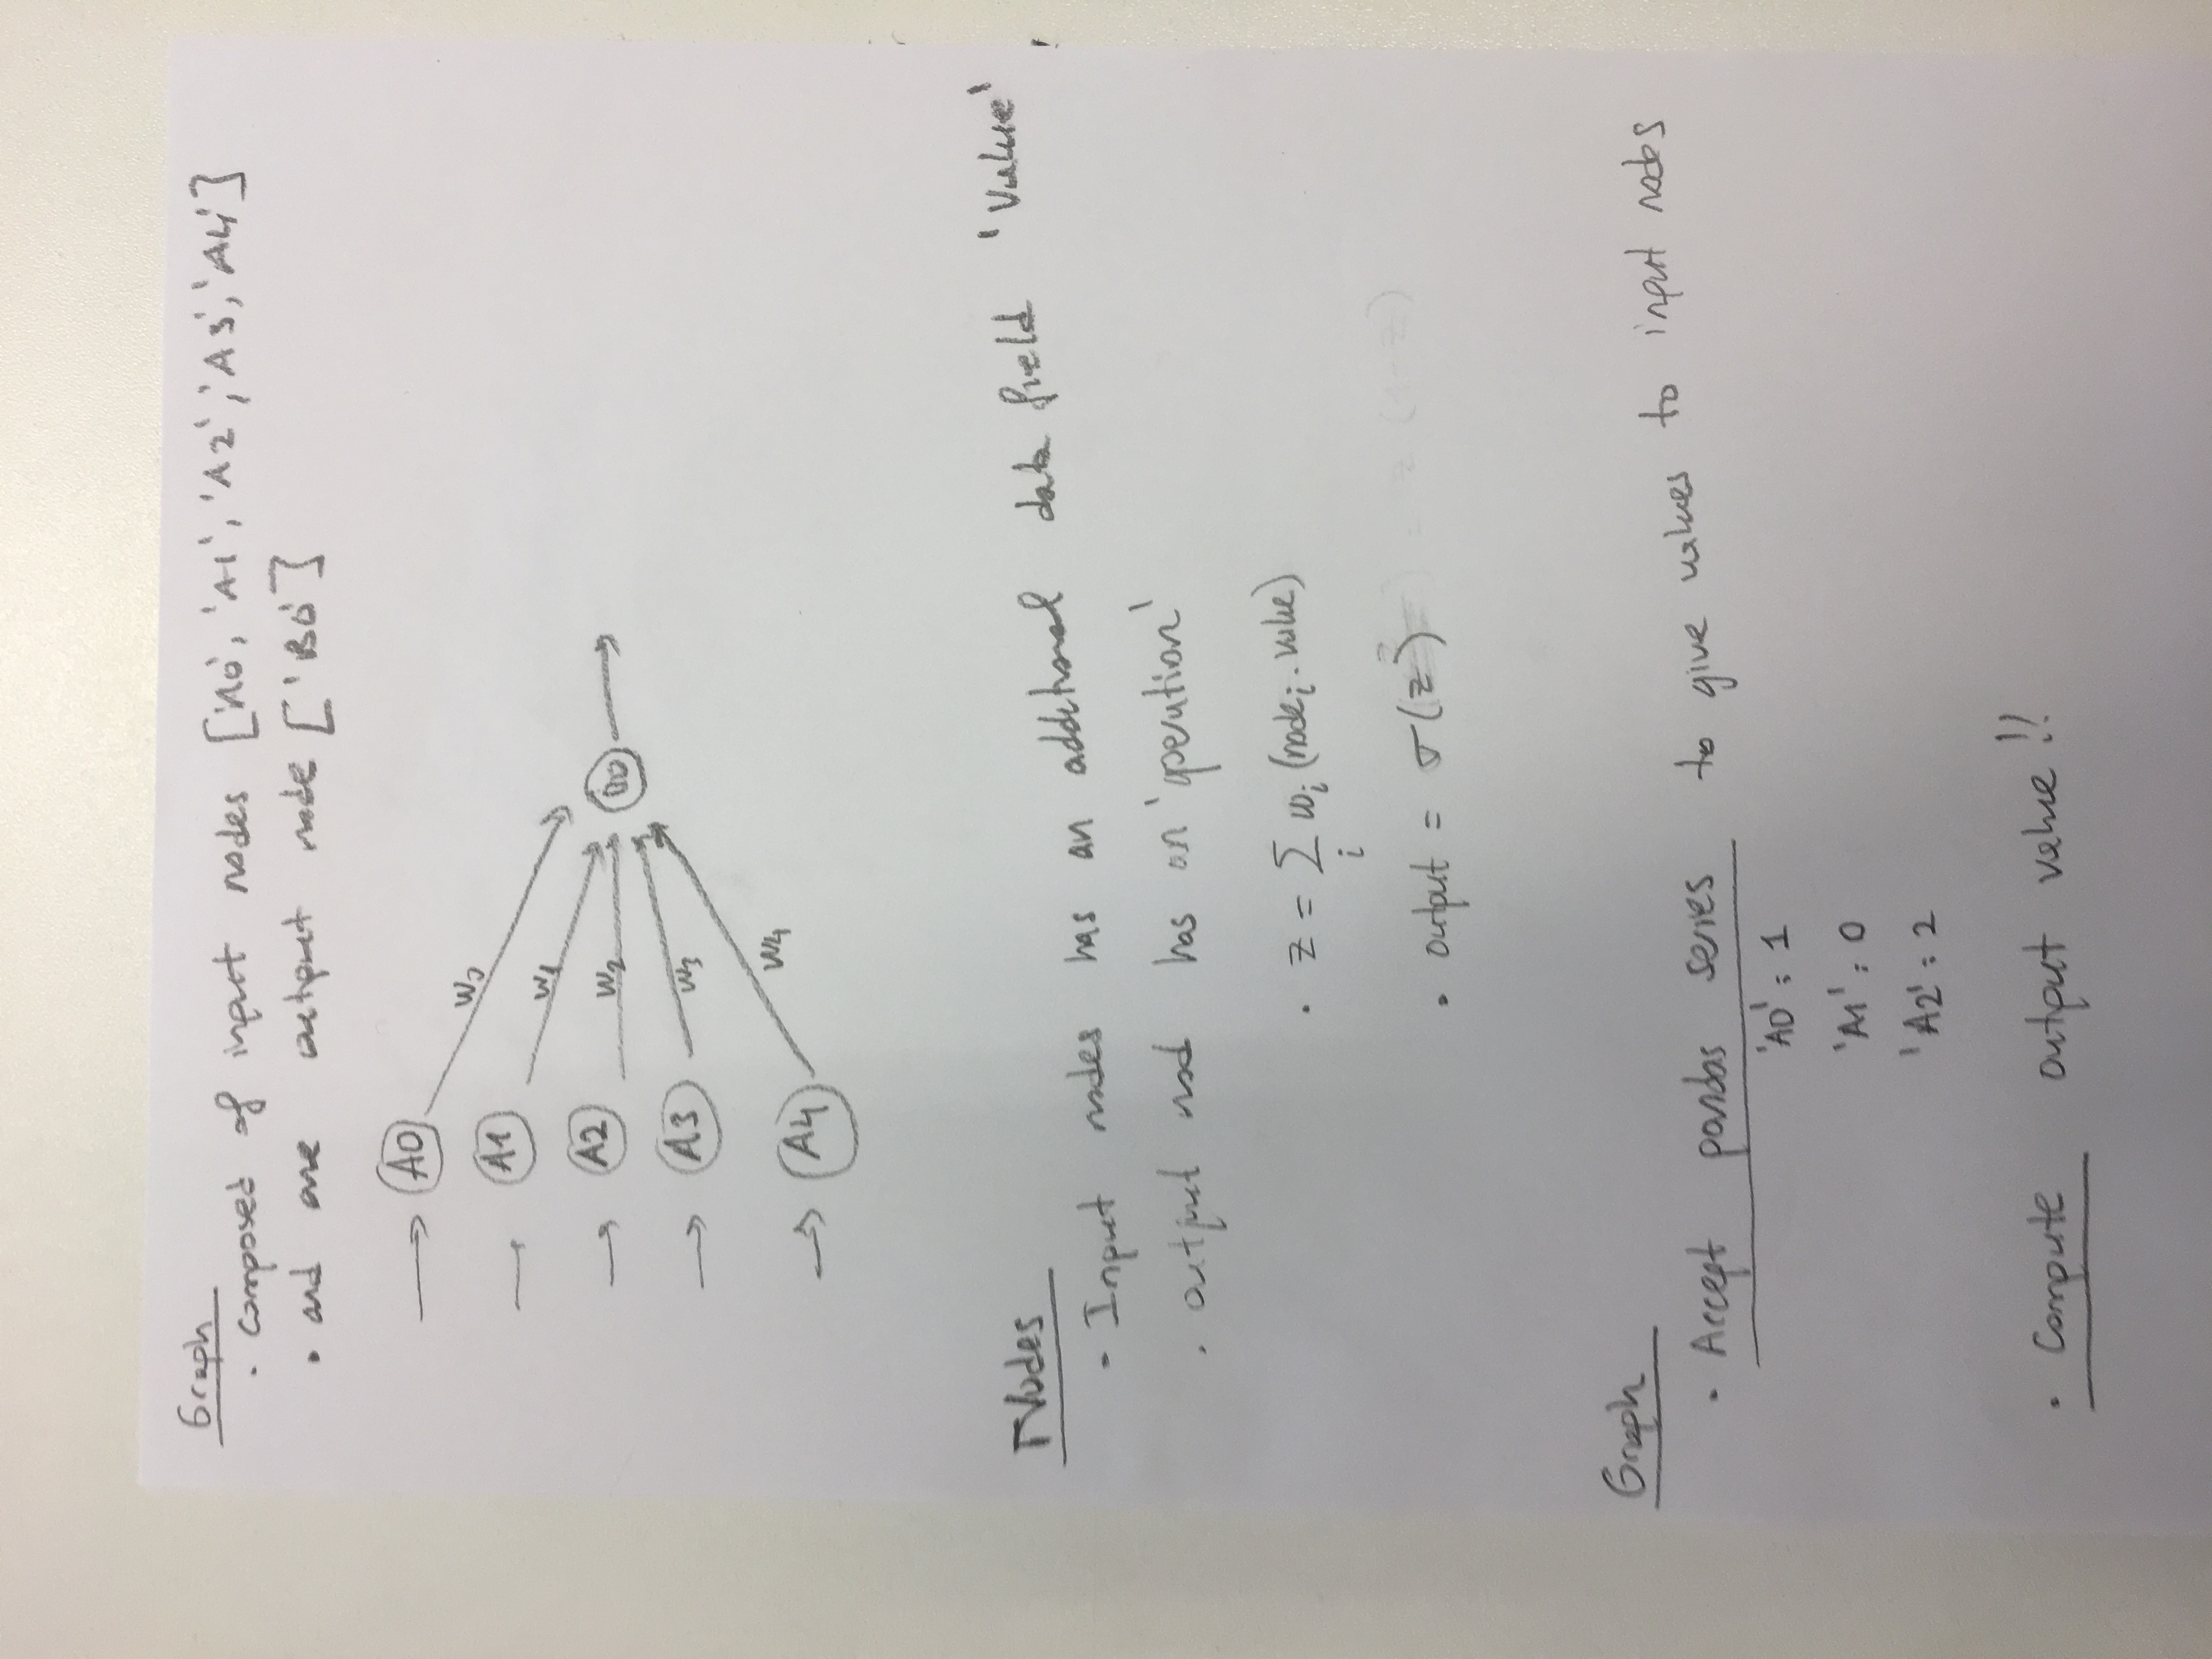 Graph
• composed of input nodes ['A0', 'A1', 'A2', 'A3', 'A4']
• and one output node ['B0']
A0
w0
A1
w1
A2
w2
B0
A3
w3
A4
w4
Nodes
- Input nodes has an additional data field 'Value'
• output nod has an 'operation'
• z = ∑ wi (nodei . value)
i
• output = σ(z)
z (1-z)
Graph
• Accept pandas series to give values to input nodes
'A0' : 1
'A1' : 0
'A2' : 2
• Compute output value !!